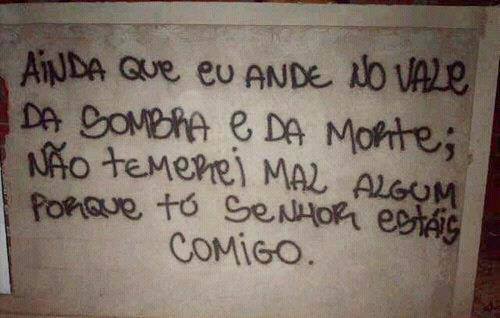 AiNDA QUE EU ANDE NO VALE
DA SOMBRA E DA MORTE;
NÃO TEMEREi MAL ALGUM
PORQUE TÓ SENHOR ESTÁiS
COMIGO.